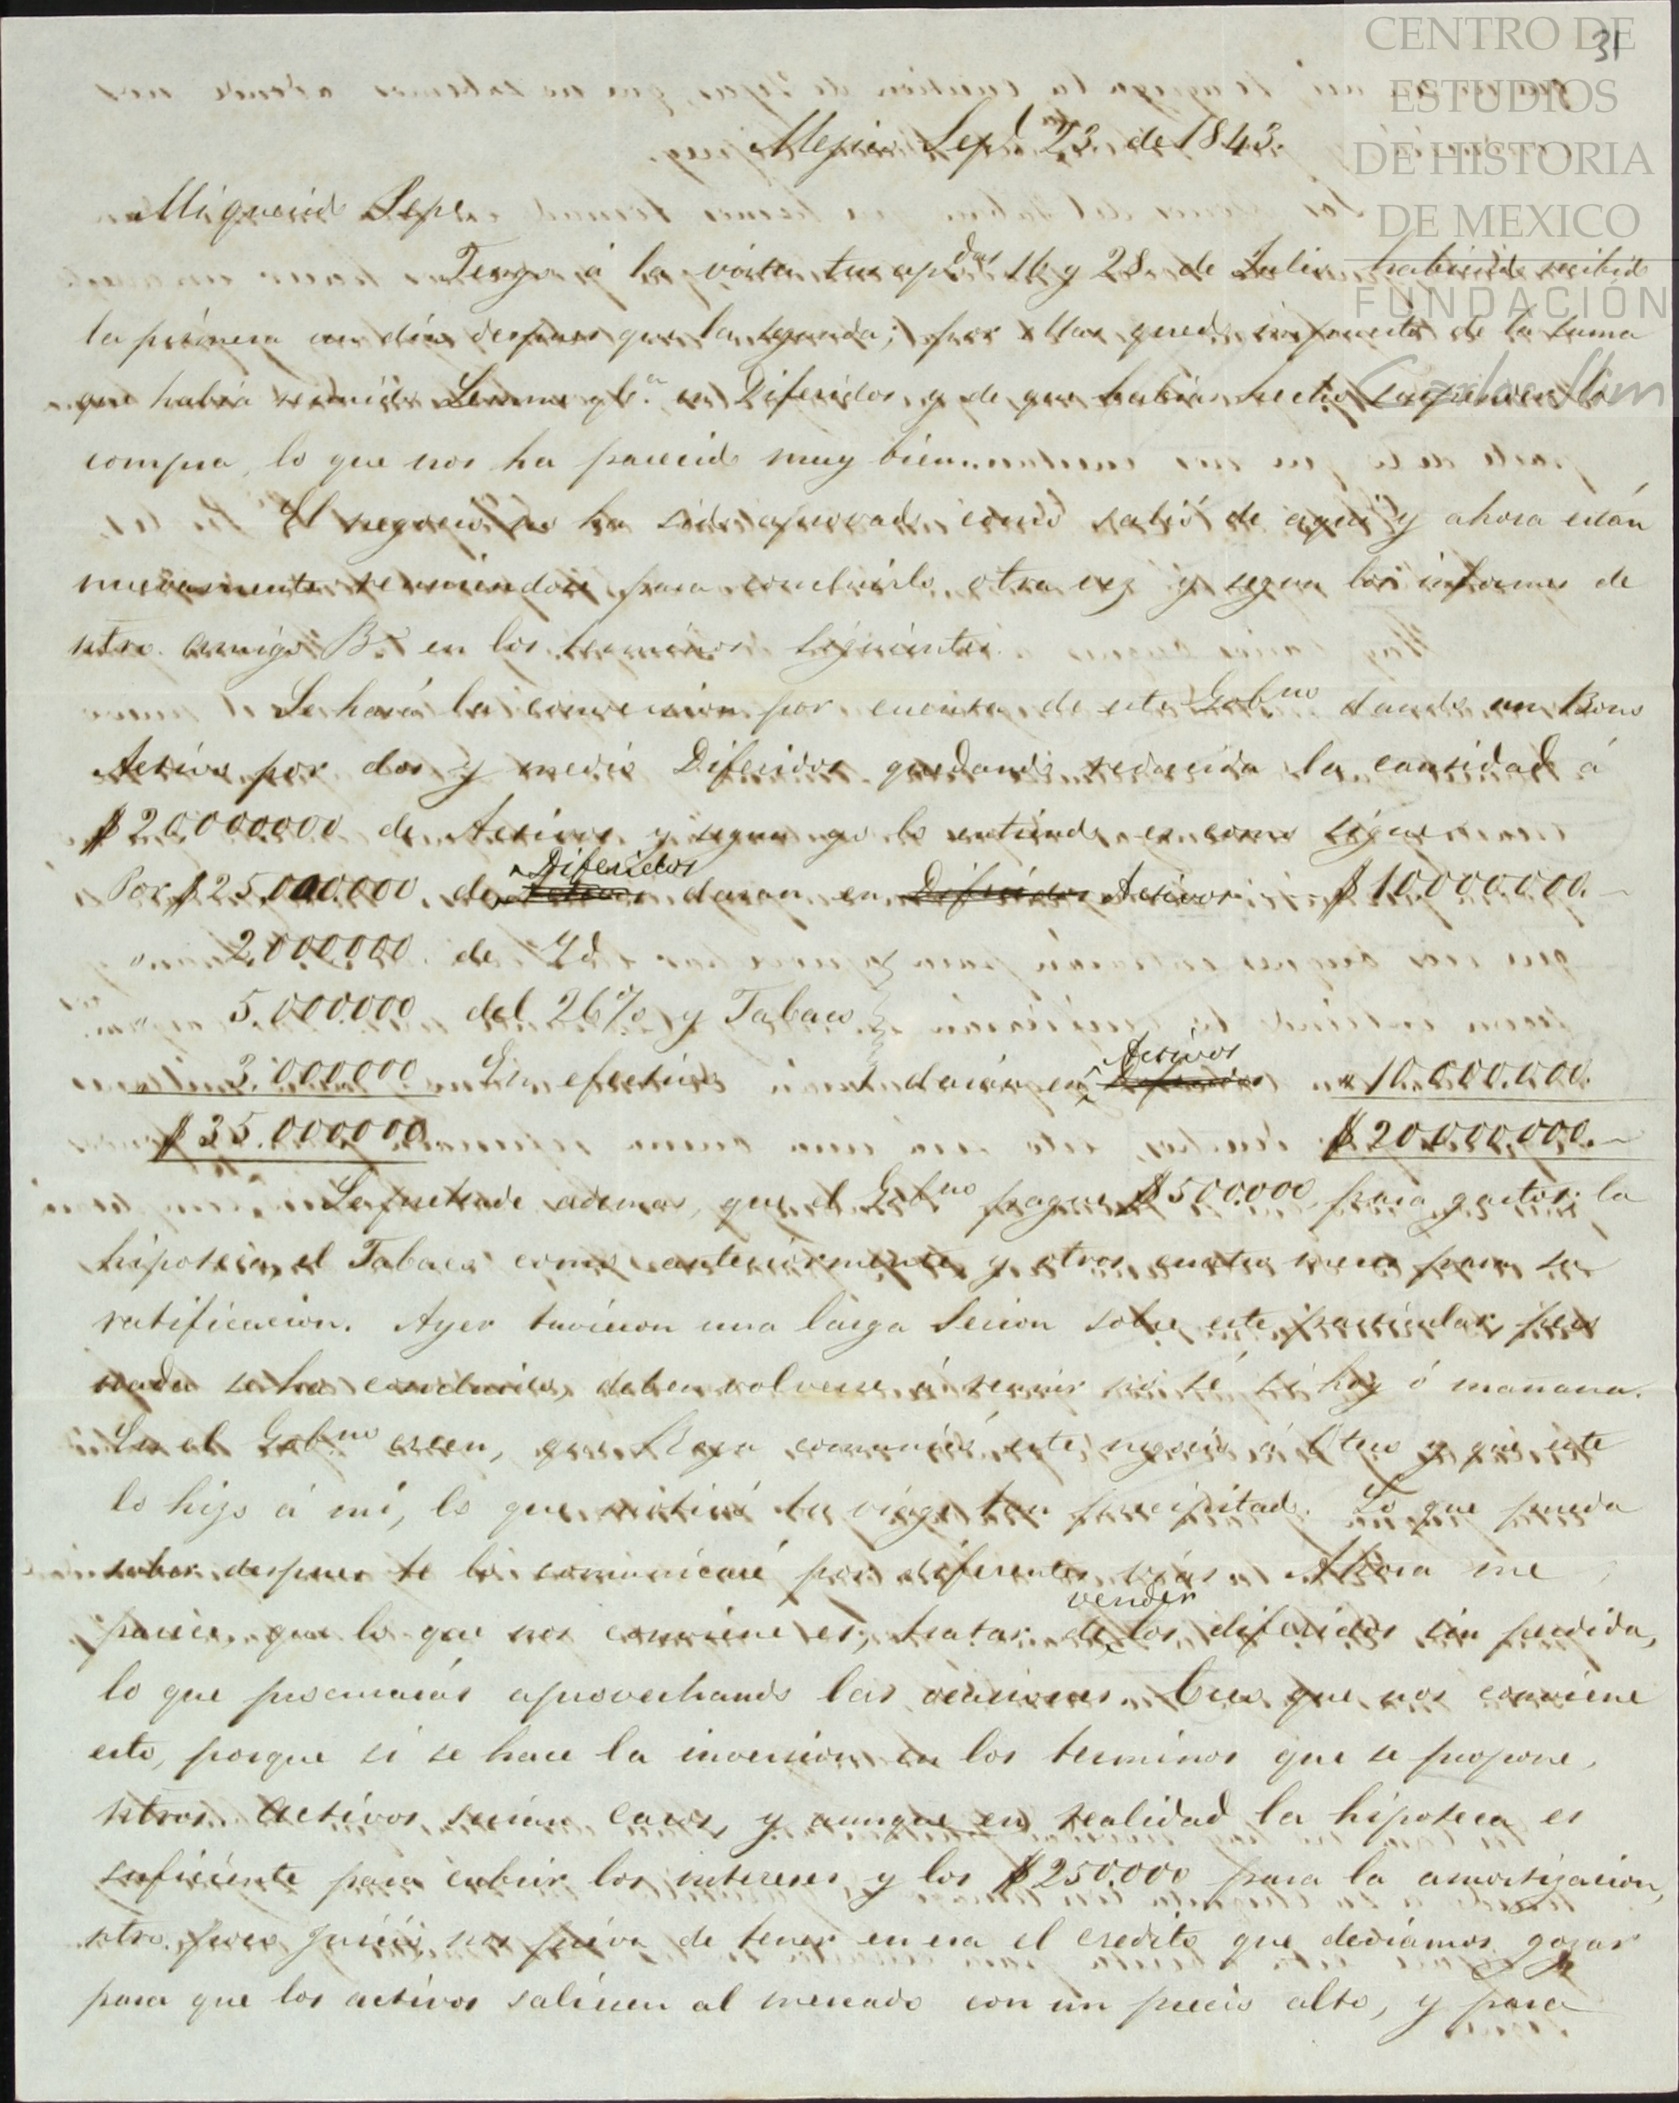 31
CENTRO DE
ESTUDIOS
DE HISTORIA
DE MEXICO
FUNDACIÓN
Carlos Slim
Mejico Sep.e 23. de 1843.
Mi querido Pepe
Tengo á la vista tus ap.das 16 y 28 de Julio habiendo recibido
la primera un dia despues que la segunda; por ellas quedo impuesto de la suma
que habia reunido y C.a en Diferidos, y de que habias hecho suspender la
compra, lo que nos ha parecido muy bien.
El negocio no ha sido aprovado como salió de aqui y ahora están
nuevamente reuniendose para concluirlo otra vez y segun los informes de
ntro. amigo B. en los terminos siguientes.
Se hará la conversion por cuenta de este Gob.no dando un Bono
Activo por dos y medio Diferidos quedando reducida la cantidad á
$20.000.000 de Activos y segun yo lo entiendo es como sigue
Por $25.000.000. de Diferidos daran en Diferidos Activos $10.000.000.
" 2.000.000. de Yd
" 5.000.000 del 26% y Tabaco
" 3.000.000 En efectivo darán en Activos " 10.000.000.
$35.000.000 $20.000.000.
Se pretende ademas, que el Gob.no pague $500.000 para gastos; la
hipoteca el Tabaco como anteriormente y otros cuatro meses para su
ratificacion. Ayer tuvieron una larga Sesion sobre este particular, pero
nada se ha concluido, deben volverse á reunir no sé si hoy ó mañana.
En el Gob.no creen, que comunicó este negocio á Otero y que este
lo hizo á mi, lo que motivó tu viage tan precipitado. Lo que pueda
saber despues te lo comunicaré por diferentes vias. Ahora me
parece, que lo que nos conviene es, tratar de vender los diferidos sin perdida,
lo que procurarás aprovechando las ocasiones. Creo que nos conviene
esto, porque si se hace la inversion en los terminos que se propone,
ntros. activos serian caros, y aunque en realidad la hipoteca es
suficiente para cubrir los intereses y los $250.000 para la amortizacion,
ntro. poco juicio nos priva de tener en esa el credito que deviamos gozar
para que los activos saliesen al mercado con un precio alto, y para